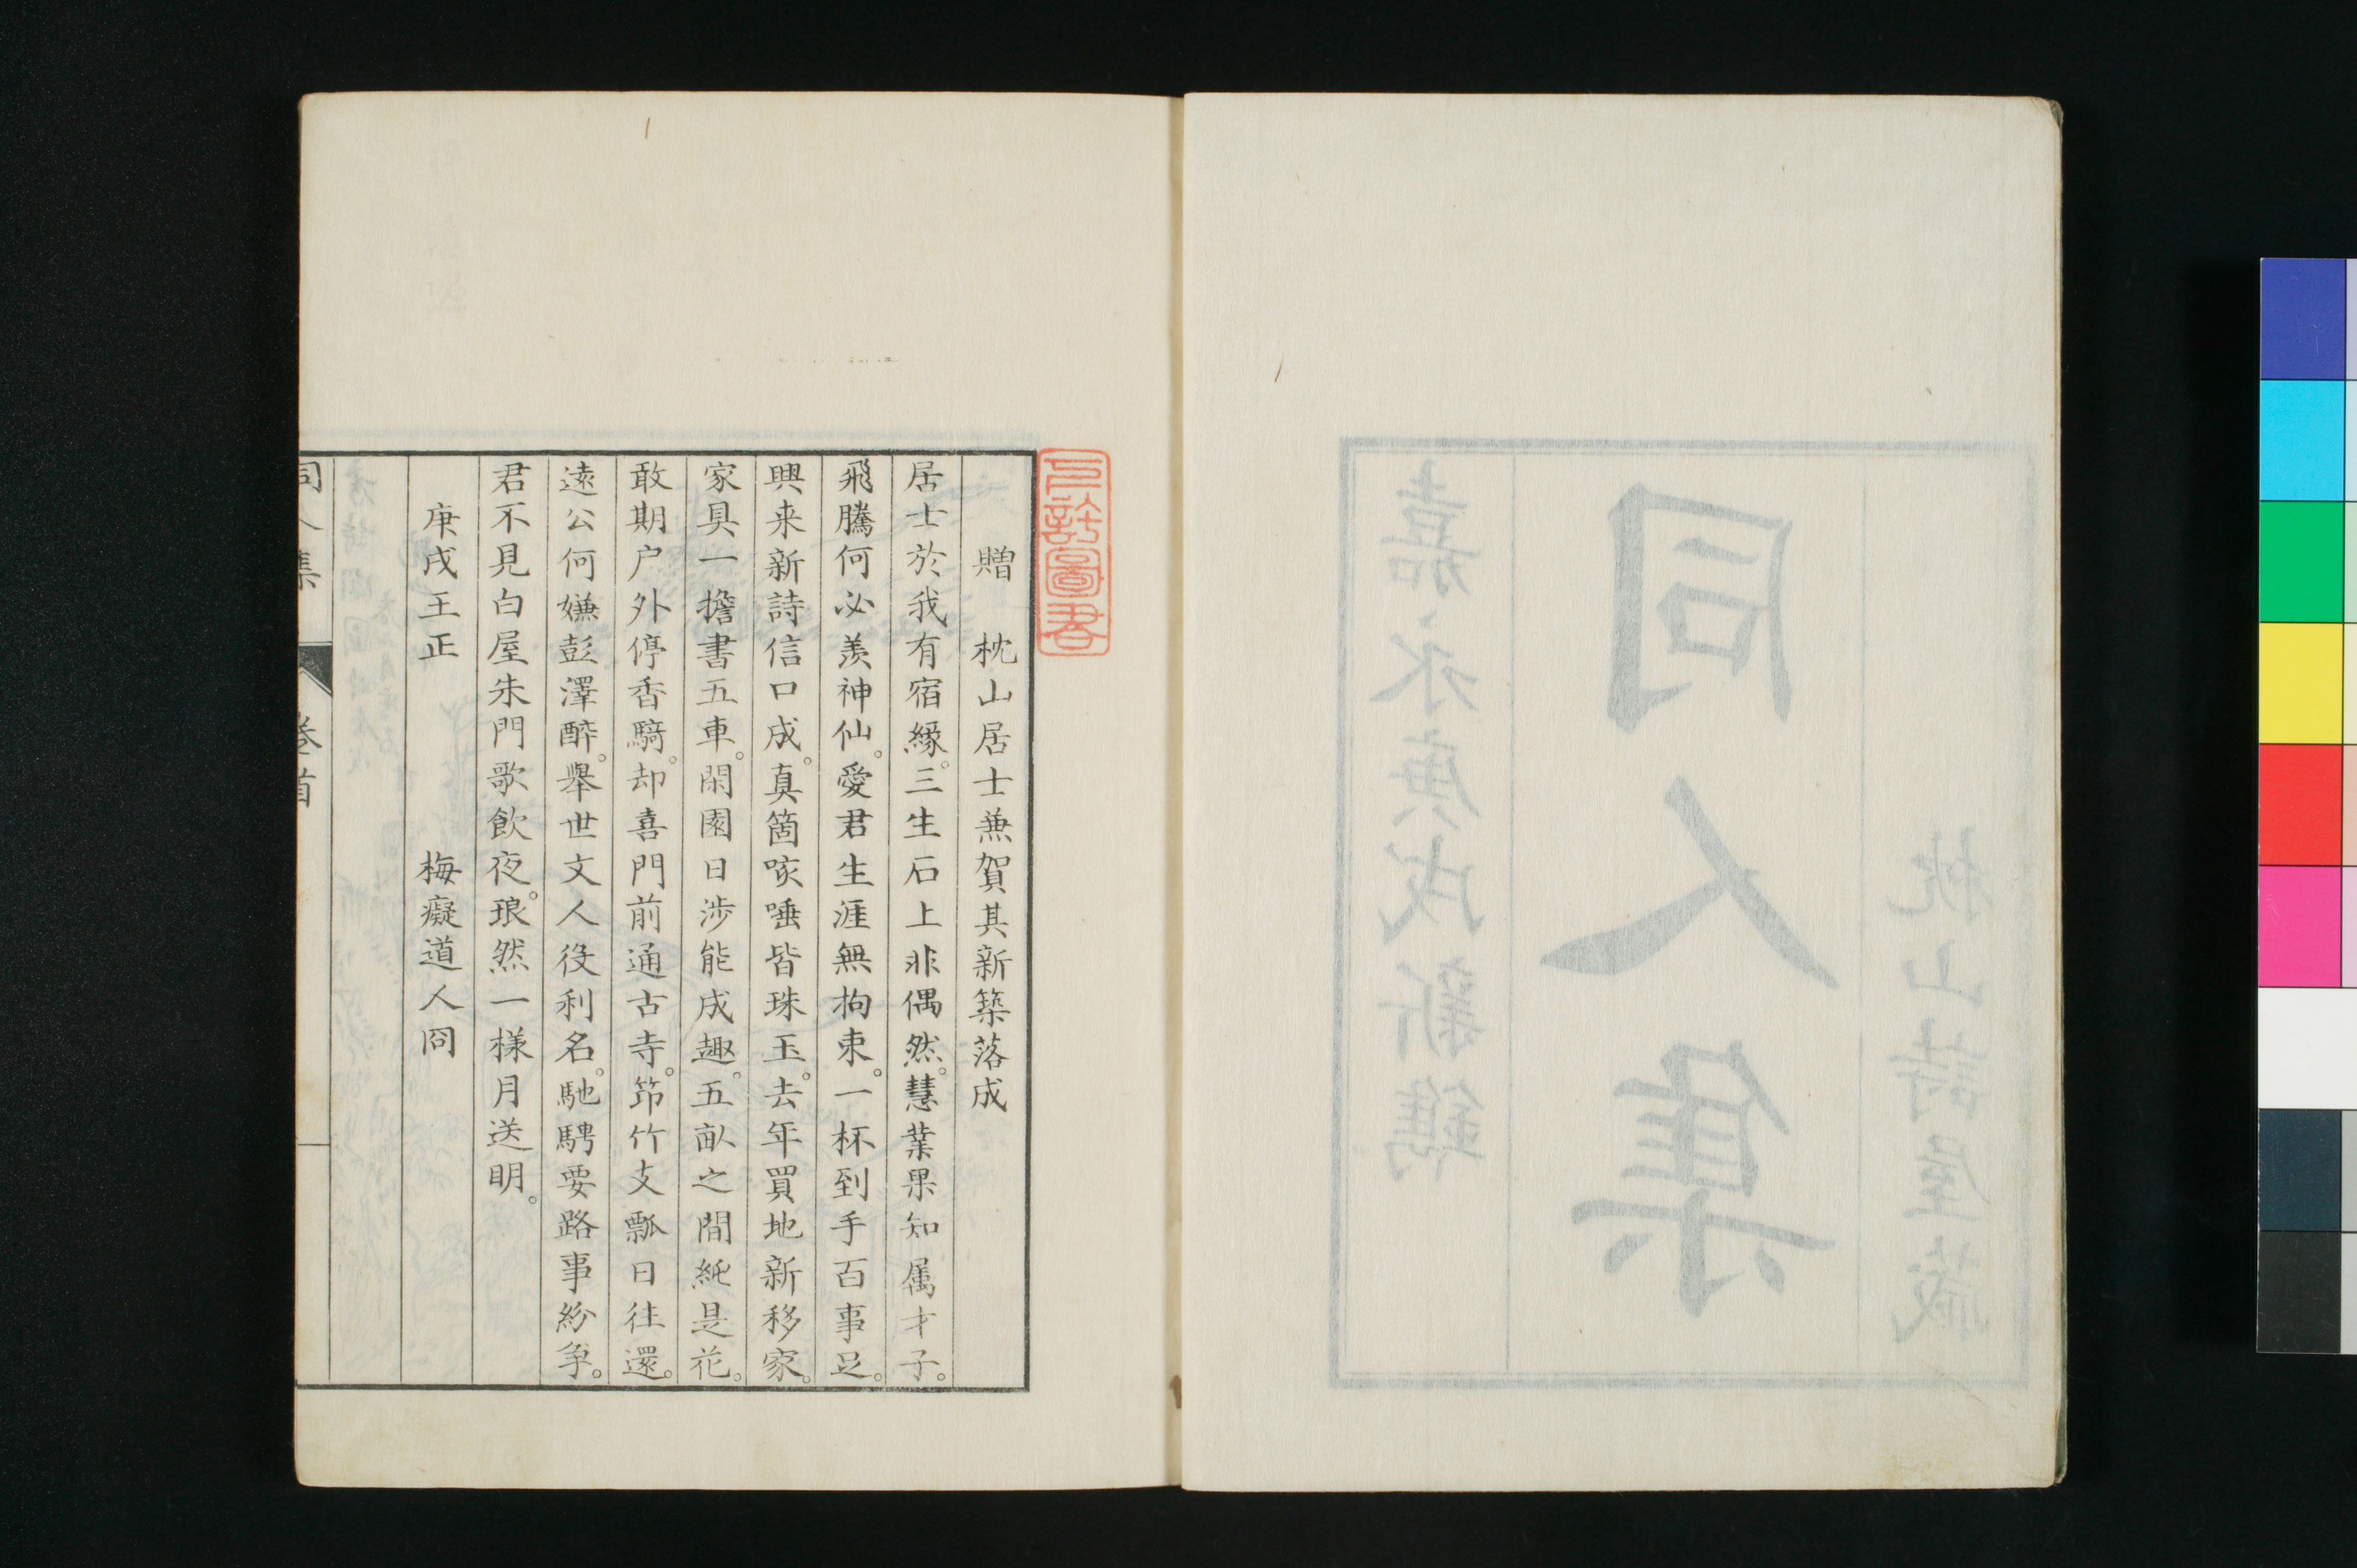 枕山詩屋蔵
同人集
嘉永庚戌新鐫
贈　枕山居士兼賀其新築落成
居士於我有宿縁。三生石上非偶然。慧業果知属才子。
飛騰何必羨神仙。愛君生涯無拘束。一杯到手百事足。
興来新詩信口成。真箇咳唾皆珠玉。去年買地新移家。
家具一擔書五車。閑園日渉能成趣。五畝之間純是花。
敢期户外停香騎。却喜門前通古寺。筇竹支瓢日往還。
遠公何嫌彭澤醉。舉世文人役利名。馳騁要路事紛争。
君不見白屋朱門歌飲夜。琅然一様月送明。
庚戌王正　梅癡道人冏
同人集　巻首